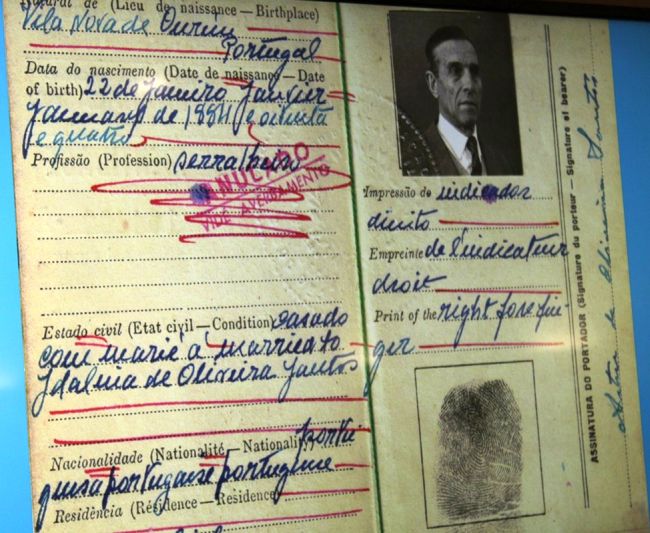 Natural de (Lieu de naissance — Birthplace)
Vila Nova de Ourém
Portugal
Data do nascimento (Date de naissance — Date
of birth) 22 de Janeiro Janvier
January de 1884 e oitenta
e quatro
Profissão (Profession) serralheiro
ANULADO
VIDE AVERBAMENTO
Estado civil (Etat civil — Condition) casado
com marié à married to
Idalina de Oliveira Santos
Nacionalidade (Nationalité — Nationality) portu
guesa portugaise portuguese
Residência (Résidence — Residence)
Impressão do indicador
direito
Empreinte de l'indicateur
droit
Print of the right forefin
ger
ASSINATURA DO PORTADOR (Signature du porteur — Signature of bearer)
Artur de Oliveira Santos